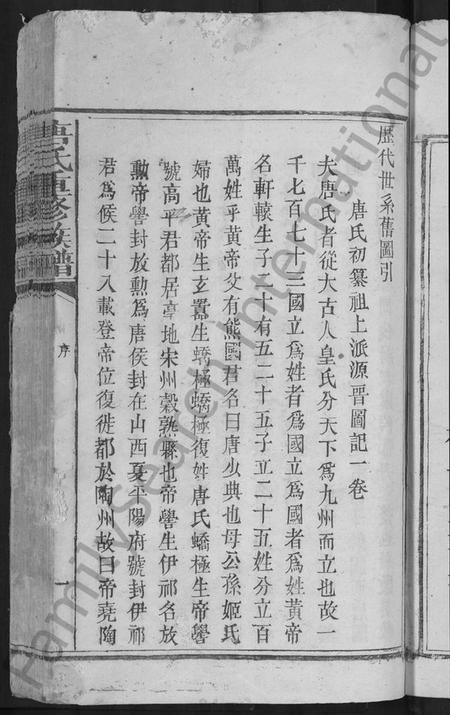 歷代世系舊圖引
唐氏初纂祖上派源晉圖記一卷
夫唐氏者從大古人皇氏分天下爲九州而立也故一
千七百七十三國立爲姓者爲國立爲國者爲姓黃帝
名軒轅生子二十有五二十五子立二十五姓分立百
萬姓乎黃帝父有熊國君名曰唐少典也母公孫姬氏
婦也黃帝生玄囂生蟜極蟜極復姓唐氏蟜極生帝嚳
號高平君都居亭地宋州穀熟縣也帝嚳生伊祁名放
勳帝嚳封放勳爲唐侯封在山西夏平陽府號封伊祁
君爲侯二十八載登帝位復徙都於陶州故曰帝堯陶
唐氏重修族譜
序
一
FamilySearch International